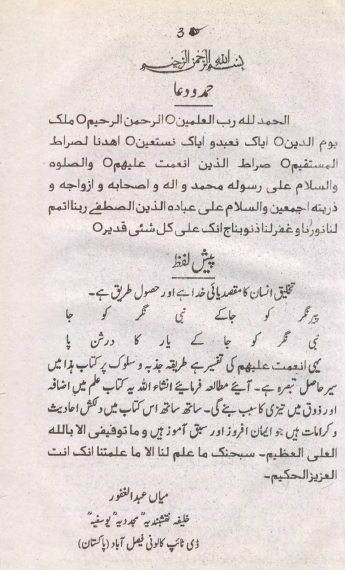 3
بسم الله الرحمن الرحيم
حمد و دعا
الحمد لله رب العلمين○ الرحمن الرحيم○ ملک
يوم الدين○ اياک نعبدو اياک نستعين○ اهدنا لصراط
المستقيم○ صراط الذين انعمت عليهم○ والصلوه
والسلام على رسوله محمد و اله و اصحابه و ازواجه و
ذريته اجمعين والسلام على عباده الذين الصطفے ربنا اتمم
لنا نورنا و غفر لنا ذنوبنا ج انک على كل شئى قدير○
پیش لفظ
تخلیق انسان کا مقصد یائی خدا ہے اور حصول طریق ہے۔
پیر نگر کو جا کے نبی نگر کو جا
نبی نگر کو جا کے یار کا درشن پا
یہی انعمت علیہم کی تفسیر ہے طریقہ جذبہ و سلوک پر کتاب ہذا میں
سیر حاصل تبصرہ ہے۔ آیئے مطالعہ فرمائیے انشاء اللہ یہ کتاب علم میں اضافہ
اور ذوق میں تیزی کا سبب بنے گی۔ ساتھ ساتھ اس کتاب میں دلکش احادیث
و کرامات ہیں جو ایمان افروز اور سبق آموز ہیں و ما توفيقى الا بالله
العلى العظيم۔ سبحنک ما علم لنا الا ما علمتنا انک انت
العزيز الحكيم۔
میاں عبدالغفور
خلیفہ نقشبندیہ "مجددیہ" یوسفیہ"
ڈی ٹائپ کالونی فیصل آباد (پاکستان)